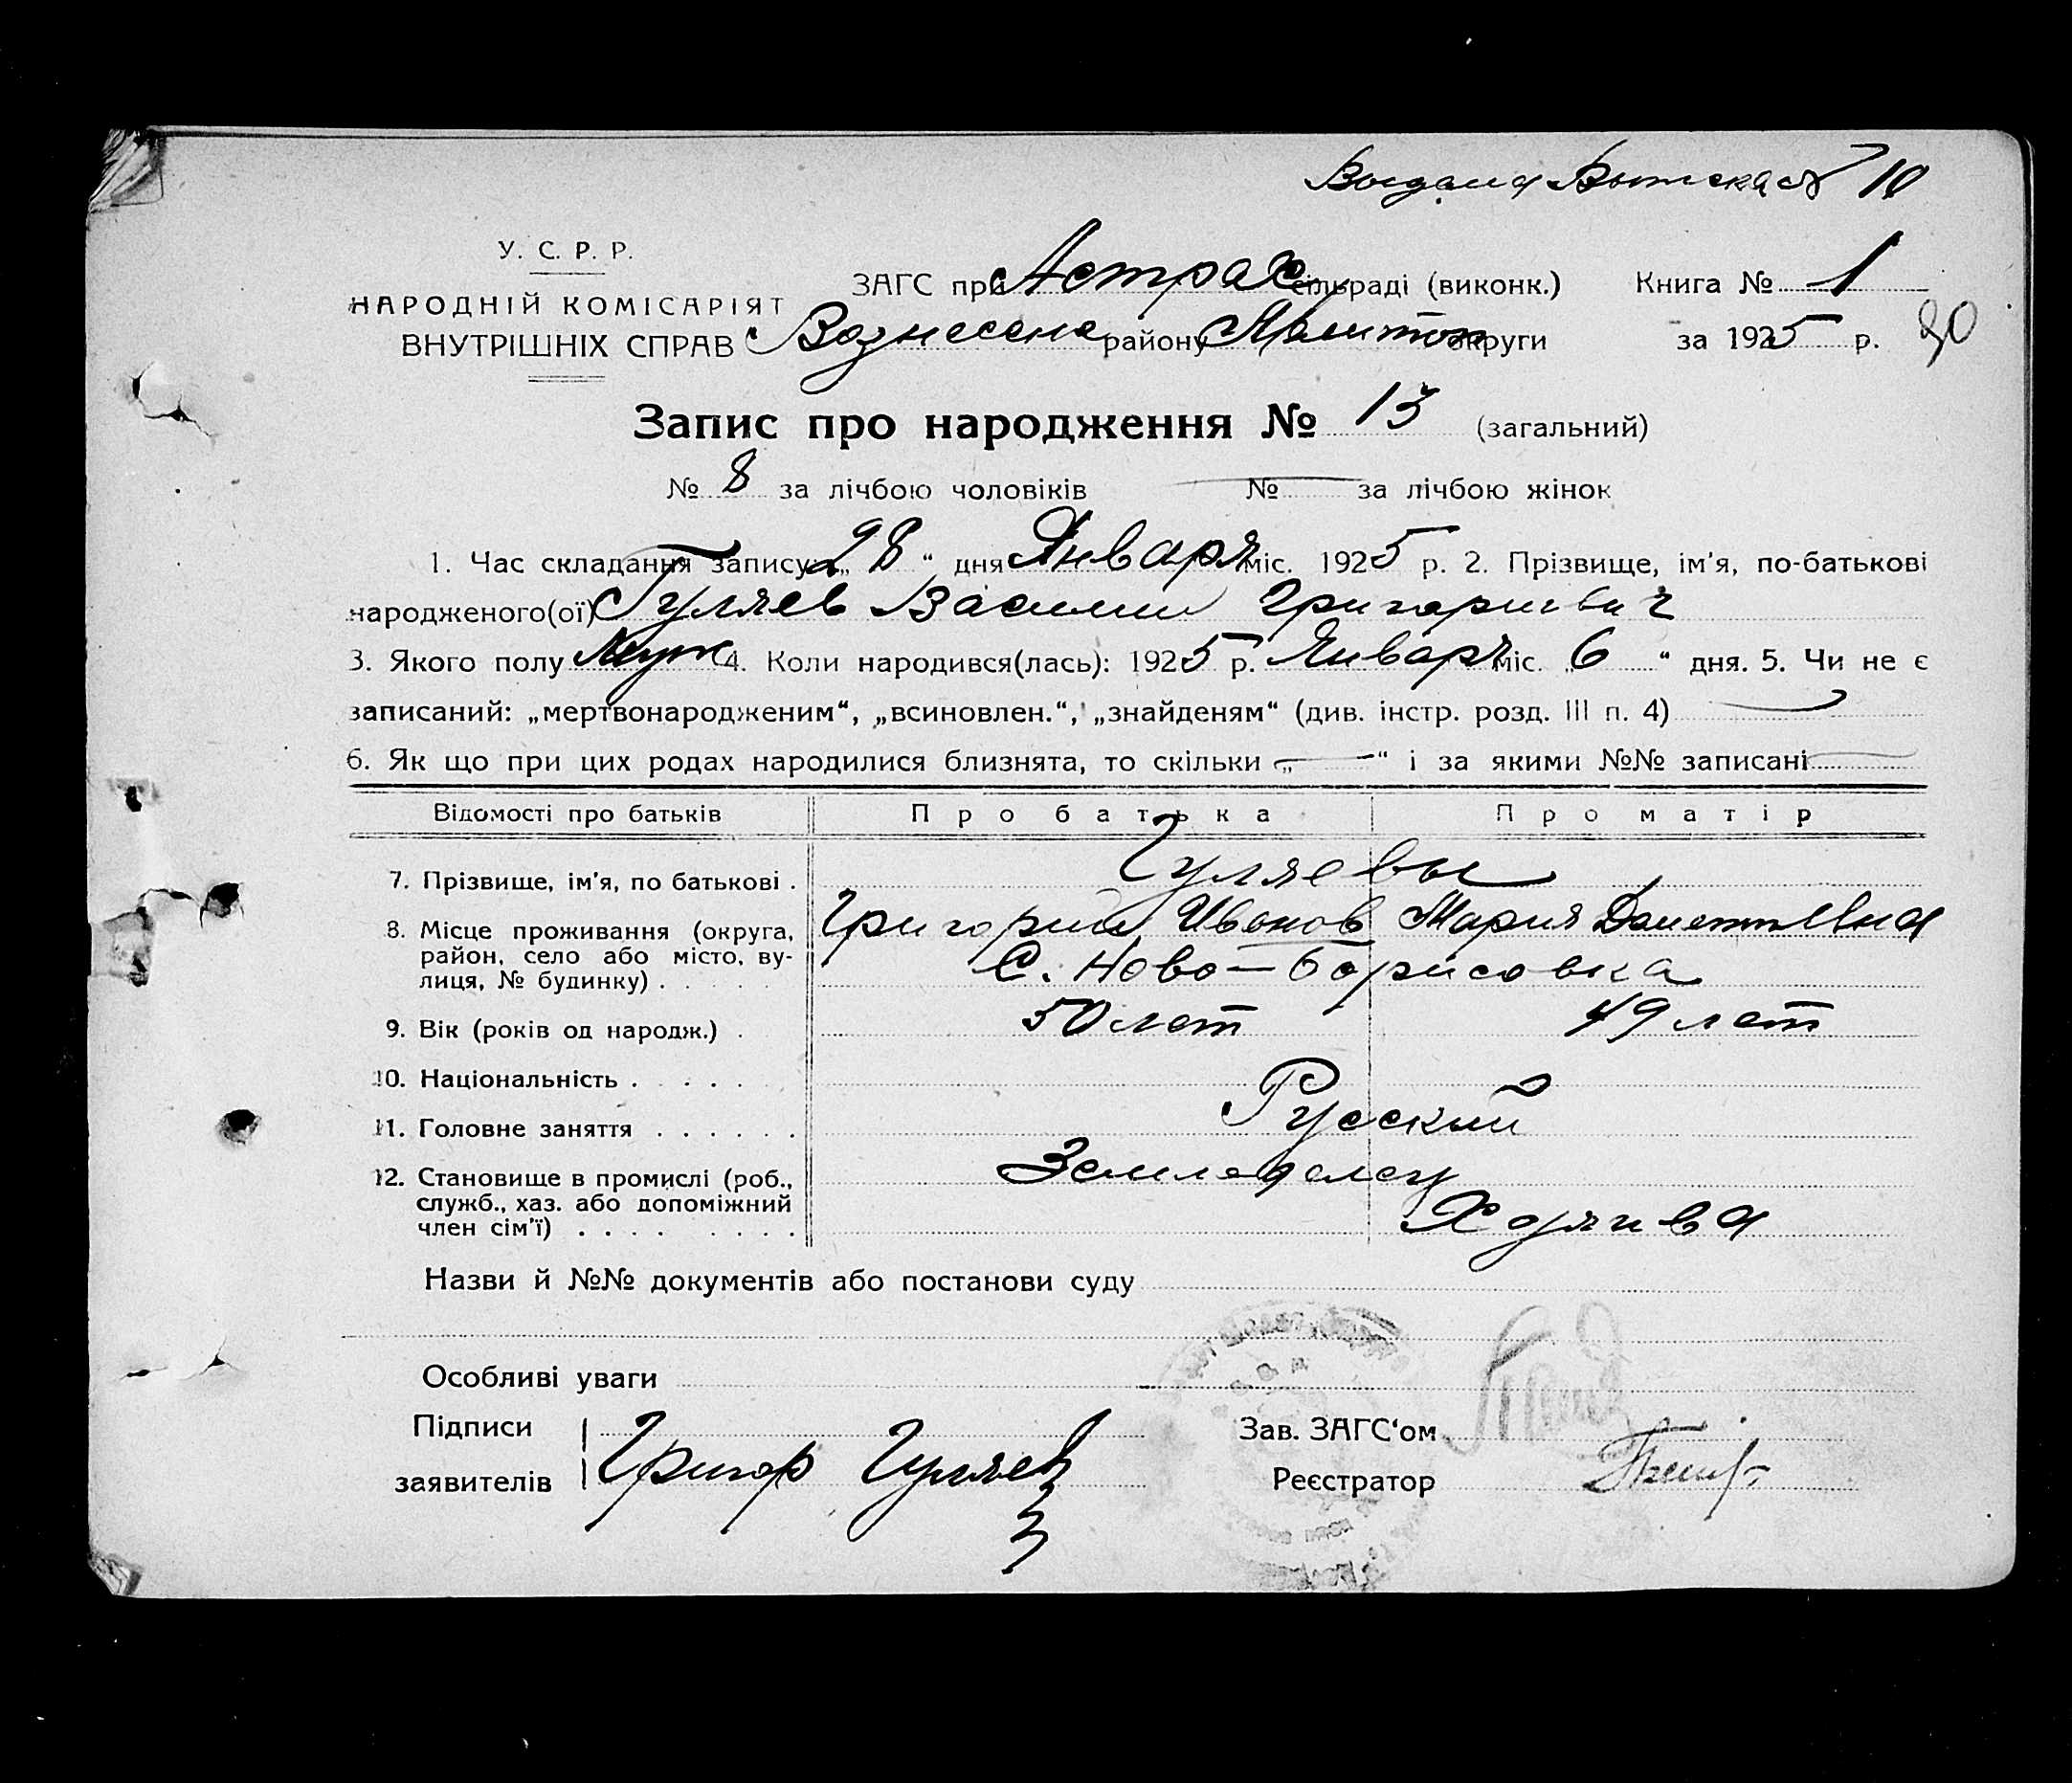 У. С. Р. Р.
НАРОДНІЙ КОМІСАРІЯТ
ВНУТРІШНІХ СПРАВ
ЗАГС при Астрах сільраді (виконк.) Книга № 1
Вознесенс району Мелитоп округи за 1925 р. 90
Запис про народження № 13 (загальний)
№ 8 за лічбою чоловіків № за лічбою жінок
1. Час складання запису „28“ дня Января міс. 1925 р. 2. Прізвище, ім'я, по-батькові
народженого(ої) Гуляев Василий Григориевич
3. Якого полу Муж 4. Коли народився(лась): 1925 р. Января міс. „6“ дня. 5. Чи не є
записаний: „мертвонародженим“, „всиновлен.“, „знайденям“ (див. інстр. розд. III п. 4)
6. Як що при цих родах народилися близнята, то скільки „ “ і за якими №№ записані
Відомості про батьків Про батька Про матір
7. Прізвище, ім'я, по батькові . Гуляевы
8. Місце проживання (округа, район, село або місто, вулиця, № будинку) . . . . . Григорий Иванов Мария
С. Ново-Борисовка
9. Вік (років од народж.) . 50 лет 49 лет
10. Національність . . . . . Русский
11. Головне заняття . . . . . . Земледелец
12. Становище в промислі (роб., служб., хаз. або допоміжний член сім'ї) . . . . . . . .
Назви й №№ документів або постанови суду
Особливі уваги
Підписи
заявителів Григор Гуляев
Зав. ЗАГС'ом
Реєстратор